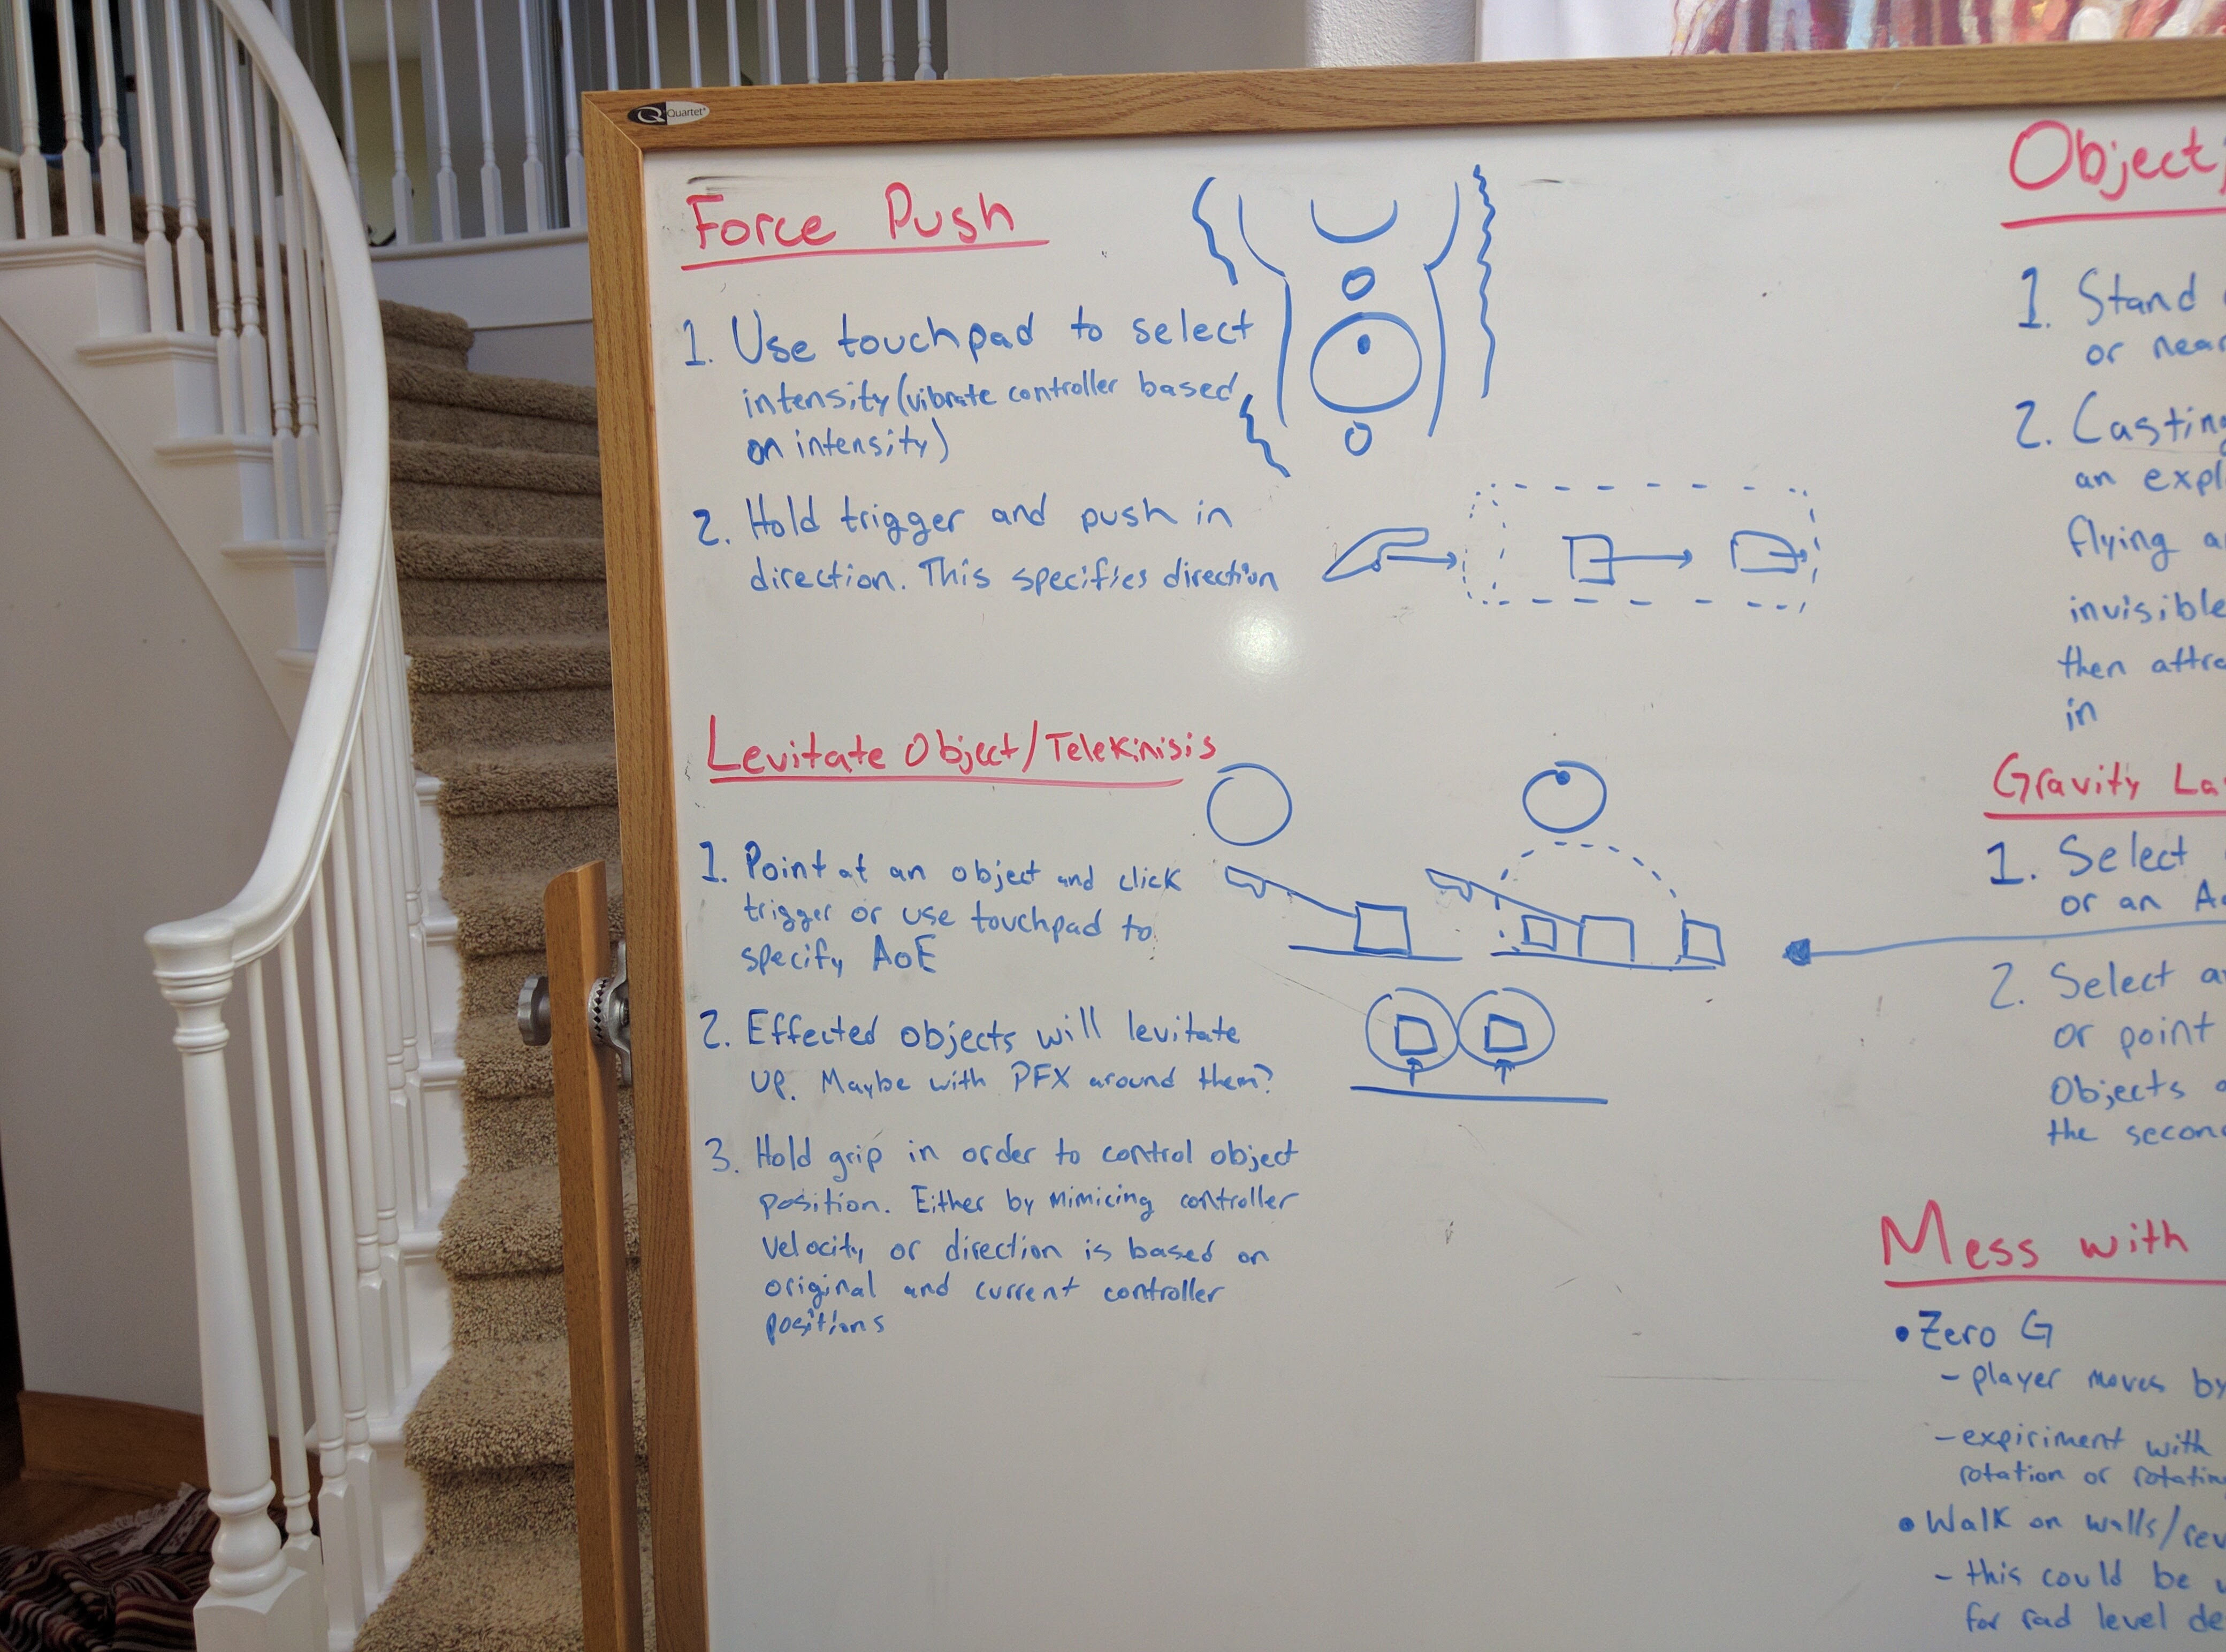 Quartet
Force Push
1. Use touchpad to select
intensity (vibrate controller based
on intensity)
2. Hold trigger and push in
direction. This specifies direction
Levitate Object/Telekinisis
1. Point at an object and click
trigger or use touchpad to
specify AoE
2. Effected objects will levitate
up. Maybe with PFX around them?
3. Hold grip in order to control object
position. Either by mimicing controller
velocity, or direction is based on
original and current controller
positions
Object
1. Stand
or near
2. Casting
an expl
flying a
invisible
then attra
in
Gravity La
1. Select
or an A
2. Select a
or point
Objects
the secon
Mess with
• Zero G
- player moves by
- expiriment with
rotation or rotatin
• Walk on walls/rev
- this could be
for rad level de